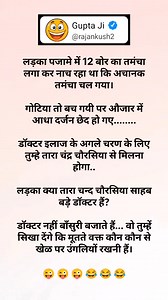 Gupta Ji
@rajankush2
लड़का पजामे में 12 बोर का तमंचा
लगा कर नाच रहा था कि अचानक
तमंचा चल गया।
गोटिया तो बच गयी पर औजार में
आधा दर्जन छेद हो गए........
डॉक्टर इलाज के अगले चरण के लिए
तुम्हे तारा चंद्र चौरसिया से मिलना
होगा..
लड़का क्या तारा चन्द चौरसिया साहब
बड़े डॉक्टर हैं?
डॉक्टर नहीं बाँसुरी बजाते हैं... वो तुम्हें
सिखा देंगे कि मूतते वक्त कौन कौन से
छेद पर उंगलियां रखनी हैं।
😜😜😜😂😂😂